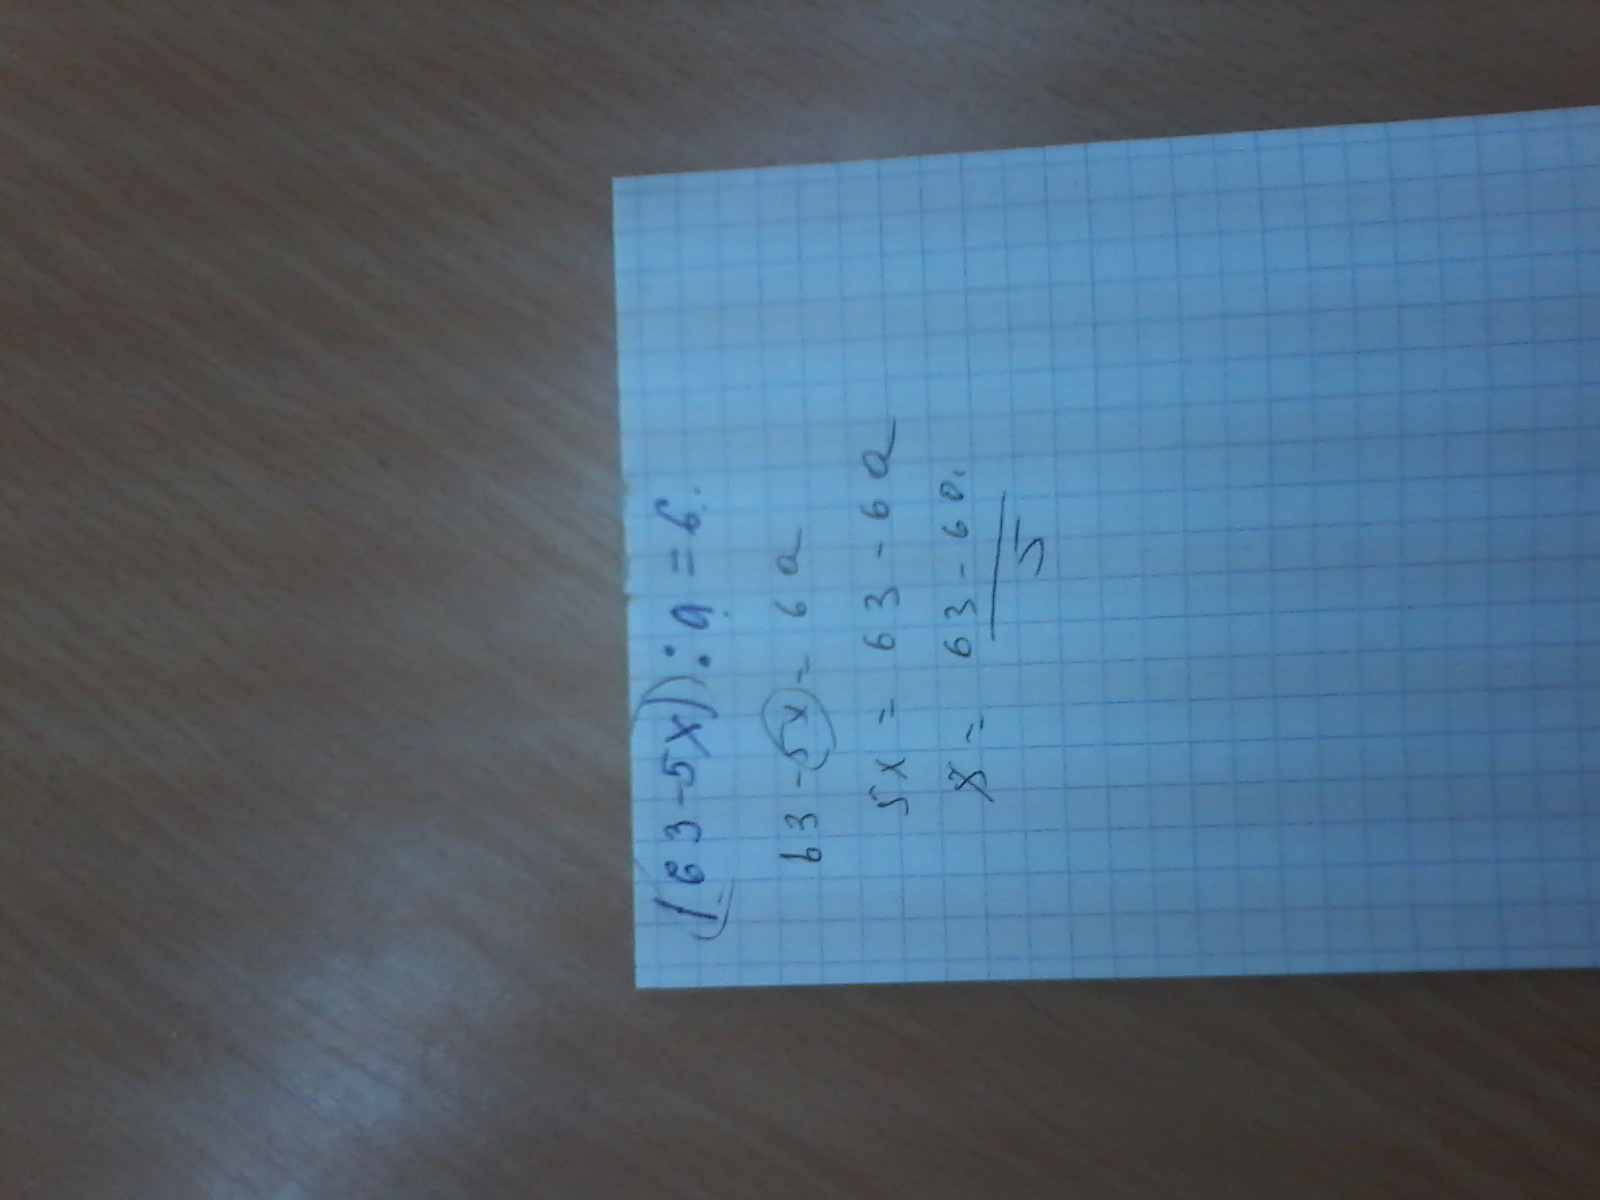 (63-5x):a=6.
63-5x=6a
5x=63-6a
x=63-6a
5